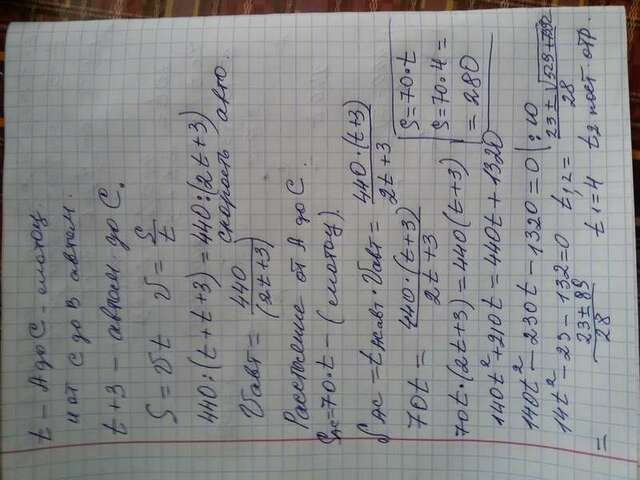 t – А до С – мотоц.
и от С до В автом.
t+3 – автом до С.
S = vt v = S/t
440:(t+t+3) = 440:(2t+3)
Vавт = 440/(2t+3) скорость авто.
Расстояние от А до С.
SАС = 70·t – (мотоц).
SАС = t · Vавт = 440·(t+3)/2t+3
70t = 440·(t+3)/2t+3
70t·(2t+3) = 440(t+3)
140t²+210t = 440t+1320
140t²-230t-1320=0 |:10
14t²-23-132=0 t1,2 = 23±√529+7392/28
= 23±89/28 t1=4 t2 пост. отр.
S=70·t
S=70·4=
=280